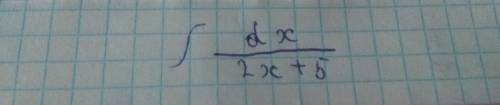 ∫ dx
2x + 5